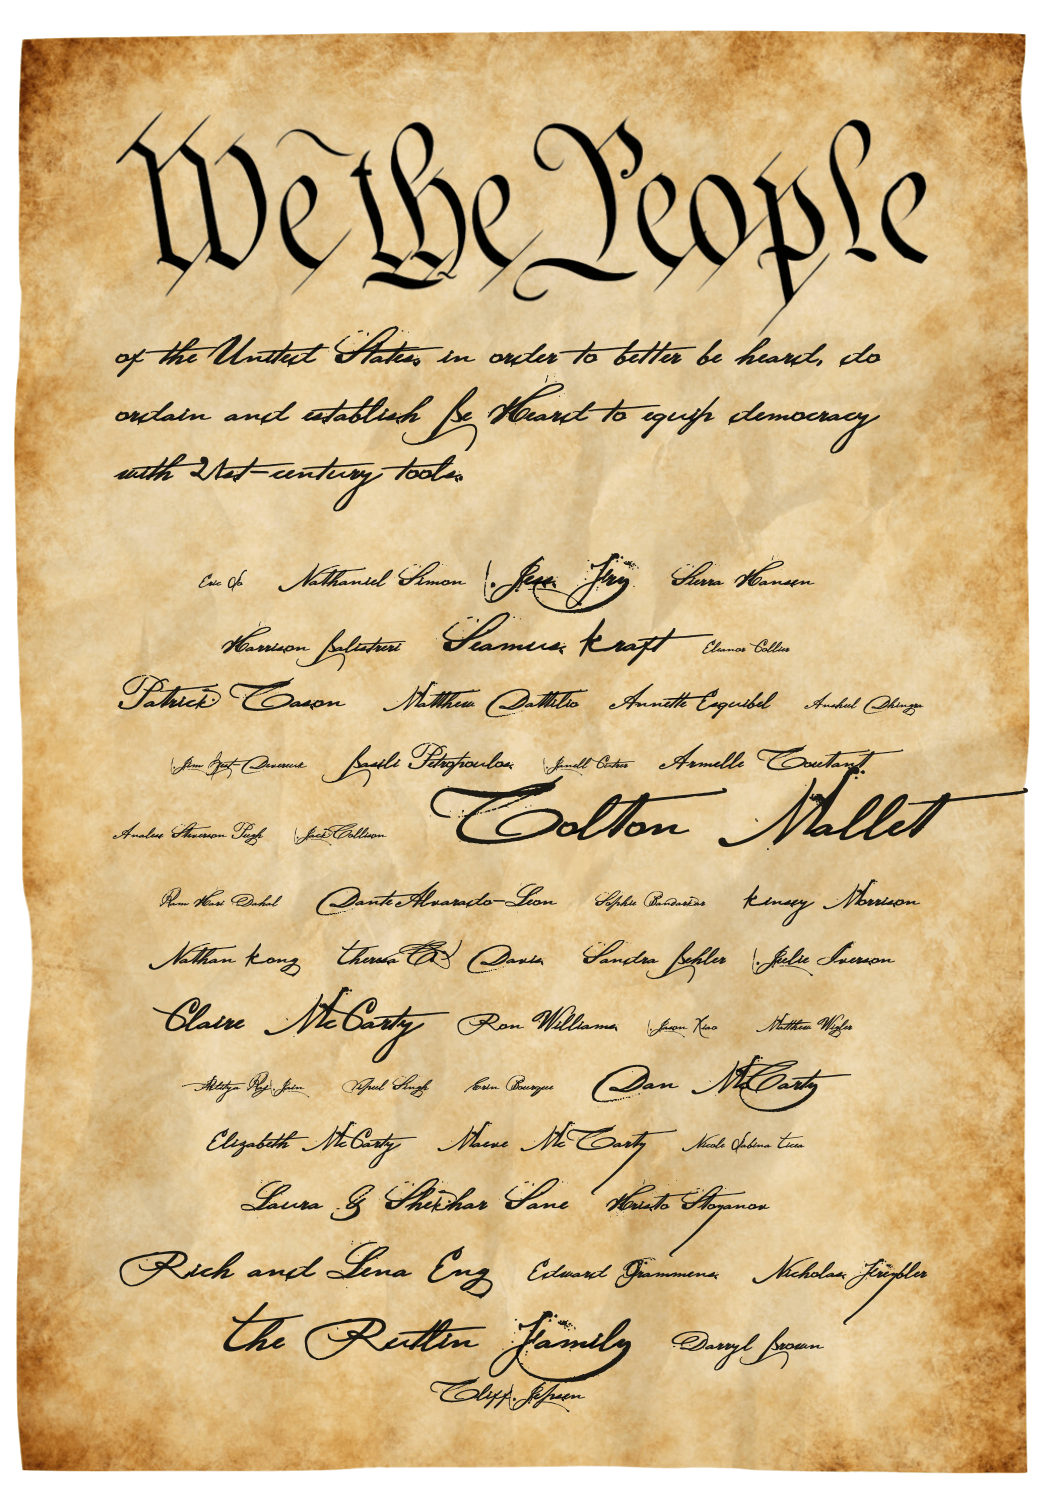 We the People
of the United States, in order to better be heard, do
ordain and establish Be Heard to equip democracy
with 21st-century tools.
Nathaniel Simon Jess Fry Sierra Hansen
Harrison Balistreri Seamus Kraft Eleanor Collier
Patrick Cason Matthew Dattilio Annette Esquibel Anshul Dhingra
Devereux Basili Petropoulos Janell Armelle Coutant
Stevenson Pugh Jack Collison Colton Mallett
Ram Hari Dahal Dante Alvarado-Leon Sophie Kinsey Morrison
Nathan Kong Theresa Davis Sandra Behler Julie Iverson
Claire McCarty Ron Williams Jason Xiao Matthew Wigler
Aditya Raj Jain Vipul Singh Erin Bourque Dan McCarty
Elizabeth McCarty Maeve McCarty Nicole Sabina
Laura & Shekhar Sane Hristo Stoyanov
Rich and Lena Eng Edward Grammens Nicholas
The Rutlin Family Darryl Brown
Cliff Jepsen